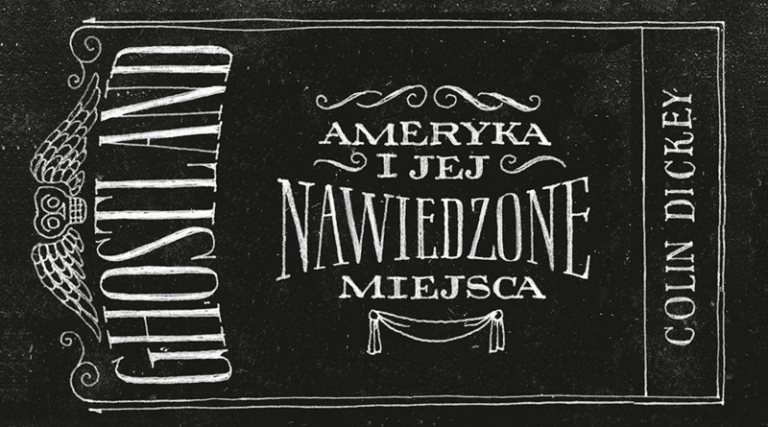 GHOSTLAND
AMERYKA
I JEJ
NAWIEDZONE
MIEJSCA
COLIN DICKEY